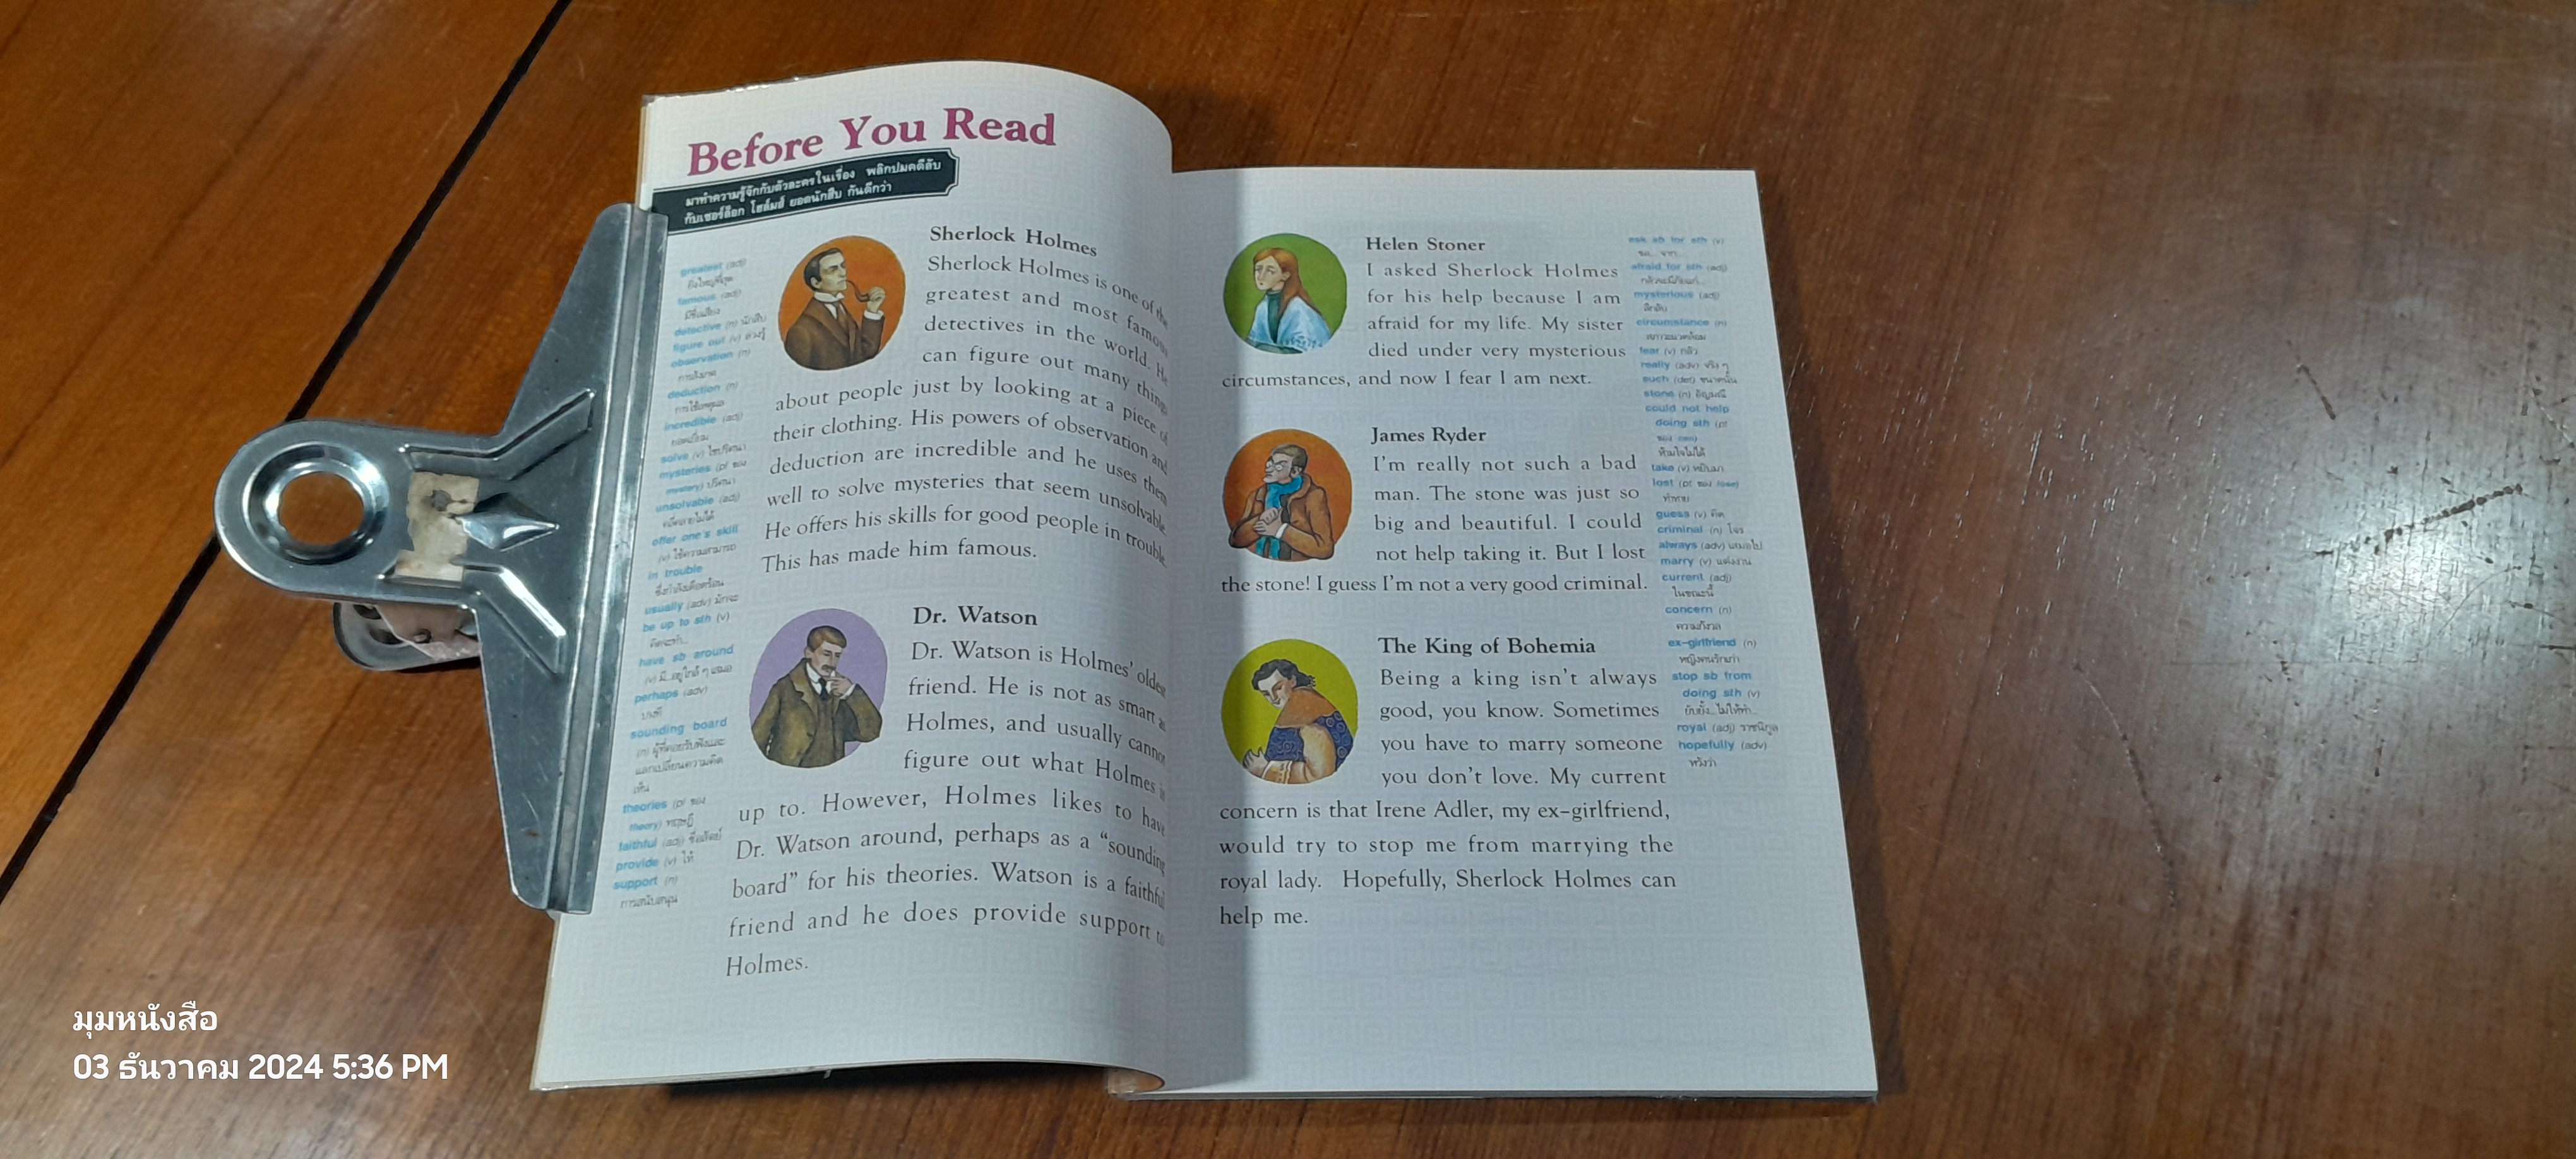 Before You Read
มาทำความรู้จักกับตัวละครในเรื่อง พลิกปมคดีลับ
กับเชอร์ล็อก โฮล์มส์ ยอดนักสืบ กันดีกว่า
greatest (adj)
ยิ่งใหญ่ที่สุด
famous (adj)
มีชื่อเสียง
detective (n) นักสืบ
figure out (v) ล่วงรู้
observation (n)
การสังเกต
deduction (n)
การใช้เหตุผล
incredible (adj)
ยอดเยี่ยม
solve (v) ไขปริศนา
mysteries (pl ของ
mystery) ปริศนา
unsolvable (adj)
offer one's skill
(v) ใช้ความสามารถ
in trouble
ซึ่งกำลังเดือดร้อน
usually (adv) มักจะ
be up to sth (v)
คิดจะทำ...
have sb around
(v) มี...อยู่ใกล้ ๆ เสมอ
perhaps (adv)
บางที
sounding board
(n) ผู้ที่คอยรับฟังและ
แลกเปลี่ยนความคิด
เห็น
theories (pl ของ
theory) ทฤษฎี
faithful (adj) ซื่อสัตย์
provide (v) ให้
support (n)
การสนับสนุน
Sherlock Holmes
Sherlock Holmes is one of the
greatest and most famous
detectives in the world. He
can figure out many things
about people just by looking at a piece of
their clothing. His powers of observation and
deduction are incredible and he uses them
well to solve mysteries that seem unsolvable.
He offers his skills for good people in trouble.
This has made him famous.
Dr. Watson
Dr. Watson is Holmes' oldest
friend. He is not as smart as
Holmes, and usually cannot
figure out what Holmes is
up to. However, Holmes likes to have
Dr. Watson around, perhaps as a "sounding
board" for his theories. Watson is a faithful
friend and he does provide support to
Holmes.
Helen Stoner
I asked Sherlock Holmes
for his help because I am
afraid for my life. My sister
died under very mysterious
circumstances, and now I fear I am next.
James Ryder
I'm really not such a bad
man. The stone was just so
big and beautiful. I could
not help taking it. But I lost
the stone! I guess I'm not a very good criminal.
The King of Bohemia
Being a king isn't always
good, you know. Sometimes
you have to marry someone
you don't love. My current
concern is that Irene Adler, my ex-girlfriend,
would try to stop me from marrying the
royal lady. Hopefully, Sherlock Holmes can
help me.
ask sb for sth (v)
ขอ...จาก...
afraid for sth (adj)
mysterious (adj)
ลึกลับ
circumstance (n)
สภาวะแวดล้อม
fear (v) กลัว
really (adv) จริง ๆ
such (det) ขนาดนั้น
stone (n) อัญมณี
could not help
doing sth (pt
ของ can)
ห้ามใจไม่ได้
take (v) หยิบมา
lost (pt ของ lose)
ทำหาย
guess (v) คิด
criminal (n) โจร
always (adv) เสมอไป
marry (v) แต่งงาน
current (adj)
ในขณะนี้
concern (n)
ความกังวล
ex-girlfriend (n)
หญิงคนรักเก่า
stop sb from
doing sth (v)
ยับยั้ง...ไม่ให้ทำ...
royal (adj) ราชนิกูล
hopefully (adv)
หวังว่า
มุมหนังสือ
03 ธันวาคม 2024 5:36 PM